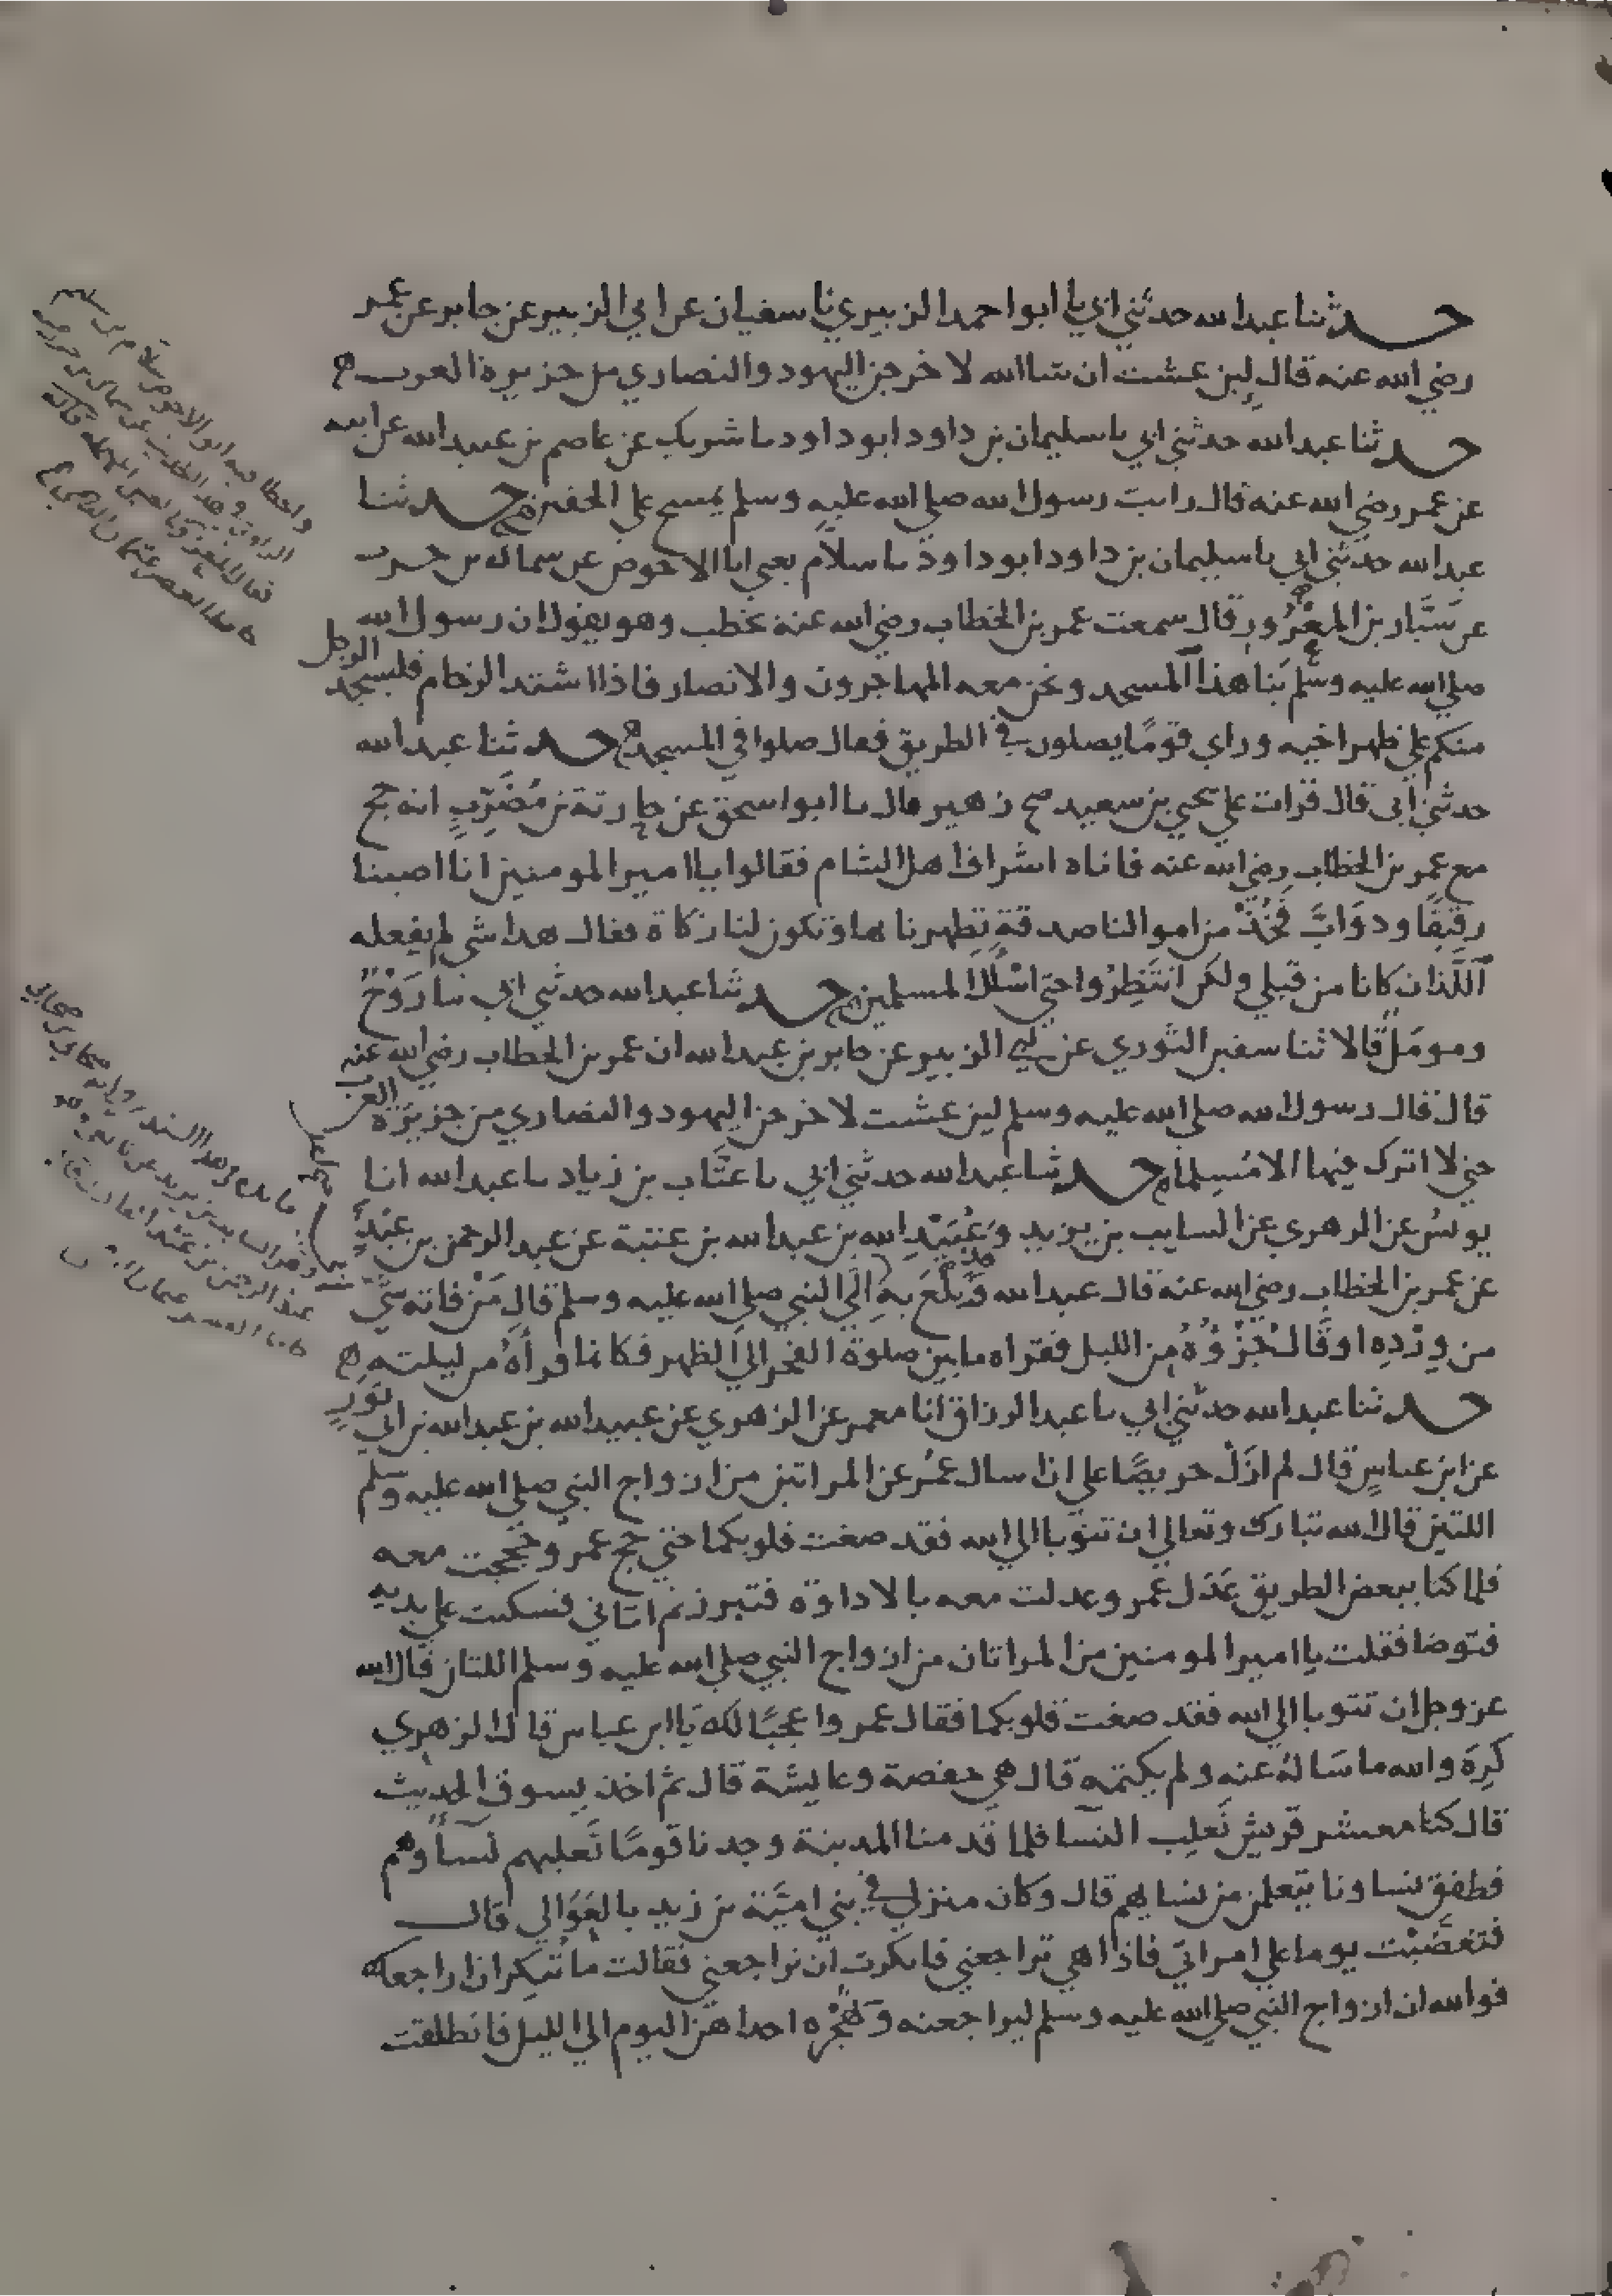 حدثنا عبد الله حدثني ابي نا ابو احمد الزبيري نا سفيان عن ابي الزبير عن جابر عن عمر
رضي الله عنه قال لين عشت ان شا الله لاخرجن اليهود والنصاري من جزيرة العرب
حدثنا عبد الله حدثني ابي نا سليمان بن داود ابو داود نا شريك عن عاصم بن عبيد الله عن ابيه
عن عمر رضي الله عنه قال رايت رسول الله صلي الله عليه وسلم يمسح علي الخفين حدثنا
عبد الله حدثني ابي نا سليمان بن داود ابو داود نا سلام يعني ابا الاحوص عن سماك بن حرب
عن سيار بن المعرور قال سمعت عمر بن الخطاب رضي الله عنه يخطب وهو يقول ان رسول الله
صلي الله عليه وسلم بنا هذا المسجد ونحن معه المهاجرون والانصار فاذا اشتد الزحام فليسجد الرجل
منكم علي ظهر اخيه وراي قوما يصلون في الطريق فقال صلوا في المسجد حدثنا عبد الله
حدثني ابي قال قرات علي يحيي بن سعيد صح زهير قال نا ابو اسحق عن حارثة بن مضرب انه حج
مع عمر بن الخطاب رضي الله عنه فاتاه اشراف اهل الشام فقالوا يا امير المومنين انا اصبنا
رقيقا ودواب فخذ من اموالنا صدقة تطهرنا بها وتكون لنا زكاة فقال هذا شي لم يفعله
اللذان كانا من قبلي ولكن انتظروا حتي اسال المسلمين حدثنا عبد الله حدثني ابي نا روح
ومومل قالا ثنا سفين الثوري عن ابي الزبير عن جابر بن عبد الله ان عمر بن الخطاب رضي الله عنه
قال قال رسول الله صلي الله عليه وسلم لين عشت لاخرجن اليهود والنصاري من جزيرة العرب
حتي لا اترك فيها الا مسلما حدثنا عبد الله حدثني ابي نا عتاب بن زياد نا عبد الله انا
يونس عن الزهري عن السايب بن يزيد وعبيد الله بن عبد الله بن عتبة عن عبد الرحمن بن عبد
عن عمر بن الخطاب رضي الله عنه قال عبد الله وقد بلغ به الي النبي صلي الله عليه وسلم قال من فاته شي
من ورده او قال جزؤه من الليل فقراه ما بين صلوة الفجر الي الظهر فكانما قراه من ليلته
حدثنا عبد الله حدثني ابي نا عبد الرزاق انا معمر عن الزهري عن عبيد الله بن عبد الله بن ابي ثور
عن ابن عباس قال لم ازل حريصا علي ان اسال عمر عن المراتين من ازواج النبي صلي الله عليه وسلم
اللتين قال الله تبارك وتعالي ان تتوبا الي الله فقد صغت قلوبكما حتي حج عمر وحججت معه
فلما كنا ببعض الطريق عدل عمر وعدلت معه بالاداوة فتبرز ثم اتاني فسكبت علي يديه
فتوضا فقلت يا امير المومنين من المراتان من ازواج النبي صلي الله عليه وسلم اللتان قال الله
عز وجل ان تتوبا الي الله فقد صغت قلوبكما فقال عمر واعجبا لك يا ابن عباس قال الزهري
كره والله ما ساله عنه ولم يكتمه قال هي حفصة وعايشة قال ثم اخذ يسوق الحديث
قال كنا معشر قريش نغلب النسا فلما قدمنا المدينة وجدنا قوما تغلبهم نساوهم
فطفق نساونا يتعلمن من نسايهم قال وكان منزلي في بني امية بن زيد بالعوالي قال
فتغضبت يوما علي امراتي فاذا هي تراجعني فانكرت ان تراجعني فقالت ما تنكر ان اراجعك
فوالله ان ازواج النبي صلي الله عليه وسلم ليراجعنه وتهجره احداهن اليوم الي الليل فانطلقت